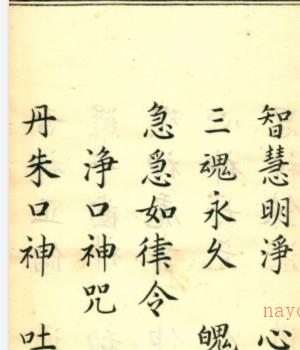 智慧明淨 心
三魂永久 魄
急急如律令
淨口神咒
丹朱口神 吐